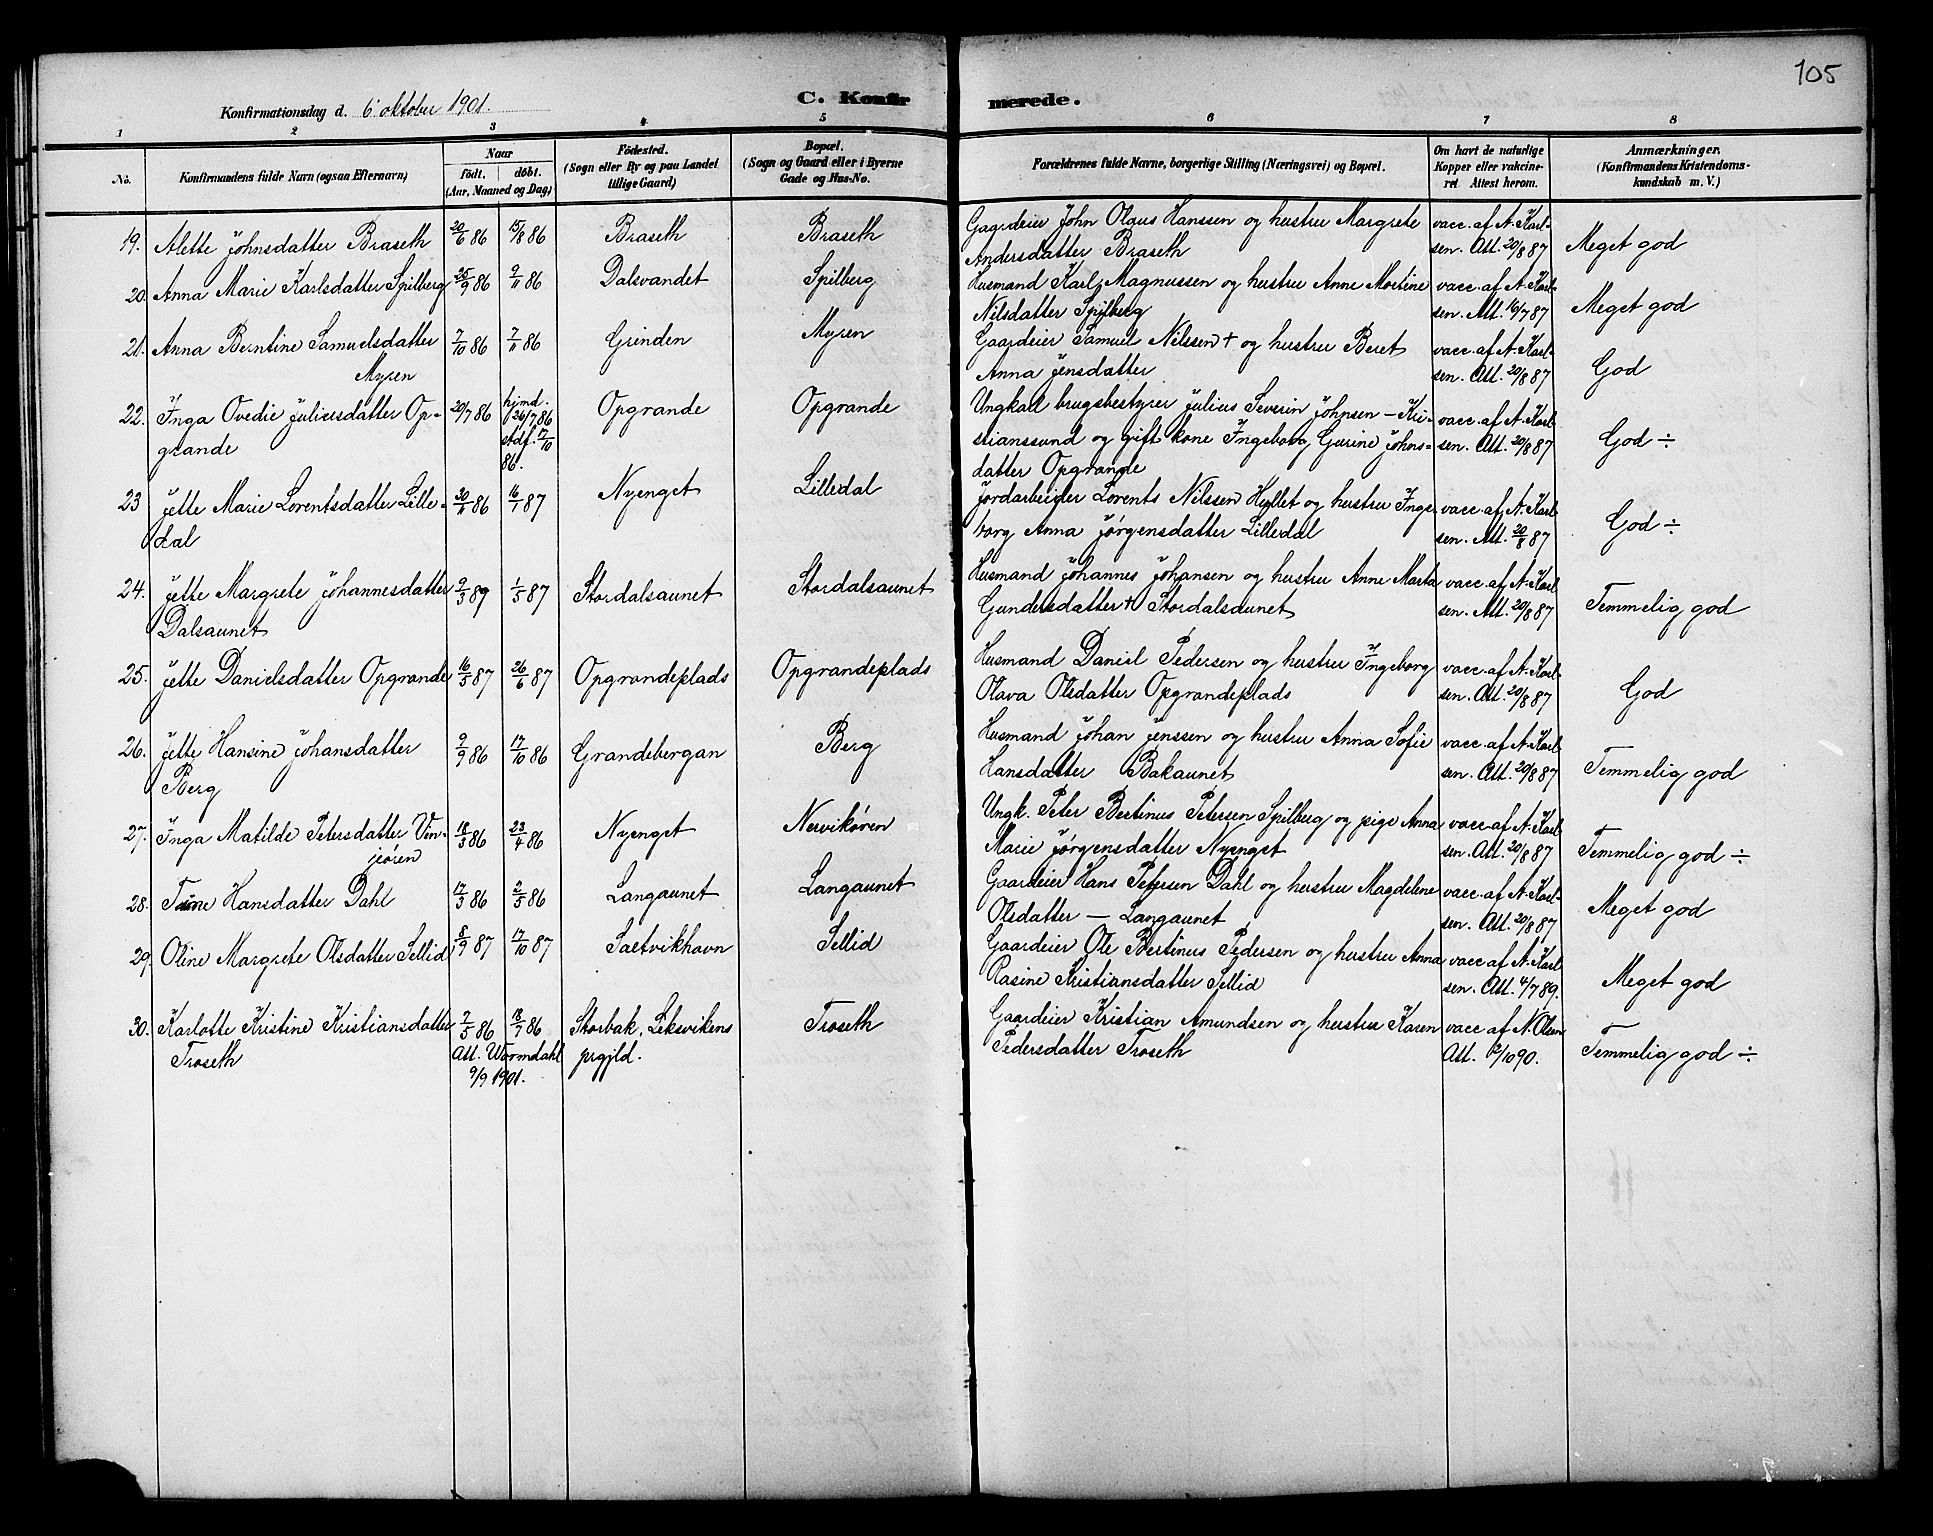 105
Konfirmationsdag d. 6' oktober 1901.
C. Konfirmerede.
1 2 3 4 5 6 7 8
No. Konfirmandens fulde Navn (ogsaa Efternavn) Naar født. døbt. (Aar, Maaned og Dag) Födested. (Sogn eller By og paa Landet tillige Gaard) Bopæl. (Sogn og Gaard eller i Byerne Gade og Hus-No. Forældrenes fulde Navne, borgerlige Stilling (Næringsvei) og Bopæl. Om havt de naturlige Kopper eller vakcineret Attest herom. Anmærkninger. (Konfirmandens Kristendomskundskab m. V.)
19. Alette Johnsdatter Braseth 20/6 86 15/8 86 Braseth Braseth Gaardeier John Olaus Hanssen og hustru Margrete vacc. af A. Karl-
Andersdatter Braseth sen. Att. 20/8 87 Meget god
20. Anna Marie Karlsdatter Spilberg 25/9 86 9/11 86 Dalsvandet Spilberg Husmand Karl Magnussen og hustru Anne Martine vacc. af A. Karl-
Nilsdatter Spilberg sen. Att. 16/7 87 Meget god
21. Anna Berntine Samuelsdatter 7/10 86 7/11 86 Grinden Myren Gaardeier Samuel Nilssen + og hustru Beret vacc. af A. Karl-
Myren Anna Jensdatter sen. Att. 20/8 87 God
22. Inga Ovedie Juliusdatter Op- 20/7 86 hjmd. 26/7 86 Opgrande Opgrande Ungkarl brugsbestyrer Julius Severin Johnsen - Kri- vacc. af A. Karl-
grande stdf. 17/10 86. stianssund og gift kone Ingeborg Gurine Johns- sen. Att. 20/8 87 God ÷
datter Opgrande
23 Jette Marie Lorentsdatter Lille- 30/11 86 16/1 87 Nyenget Lilledal Jordarbeider Lorents Nilssen Hyllet og hustru Inge- vacc. af A. Karl-
dal borg Anna Jørgensdatter Lilledal sen. Att. 20/8 87 God ÷
24. Jette Margrete Johannesdatter 9/3 89 1/5 87 Stordalsaunet Stordalsaunet Husmand Johannes Johansen og hustru Anne Marta vacc. af A. Karl-
Dalsaunet Gundersdatter + Stordalsaunet sen. Att. 20/8 87 Temmelig god
25. Jette Danielsdatter Opgrande 16/5 87 26/6 87 Opgrandeplads Opgrandeplads Husmand Daniel Pedersen og hustru Ingeborg vacc. af A. Karl-
Olava Olsdatter Opgrandeplads sen. Att. 20/8 87 God
26. Jette Hansine Johansdatter 9/9 86 17/10 86 Grandebergan Berg Husmand Johan Jenssen og hustru Anna Sofie vacc. af A. Karl-
Berg Hansdatter Bakaunet sen. Att. 20/8 87 Temmelig god
27. Inga Matilde Petersdatter Vin- 18/3 86 23/4 86 Nyenget Nervikøren Ungk. Peter Bertinus Petersen Spilberg og pige Anna vacc. af A. Karl-
jeøren Marie Jørgensdatter Nyenget sen. Att. 20/8 87 Temmelig god ÷
28. Hansdatter Dahl 17/3 86 2/5 86 Langaunet Langaunet Gaardeier Hans Petersen Dahl og hustru Magdelene vacc. af A. Karl-
Olsdatter - Langaunet sen. Att. 20/8 87 Meget god
29. Oline Margrete Olsdatter Sellid 8/9 87 17/10 87 Saetvikhavn Sellid Gaardeier Ole Bertinus Pedersen og hustru Anna vacc. af A. Karl-
Rasine Kristiansdatter Sellid sen. Att. 4/7 89. Meget god
30. Karlotte Kristine Kristiansdatter 7/5 86 18/7 86 Storbak, Leksvikens Troseth Gaardeier Kristian Amundsen og hustru Karen vacc. af N. Olsen
Troseth Att. Wormdahl prgjld. Pedersdatter Troseth Att. 2/10 90. Temmelig god ÷
9/9 1901.